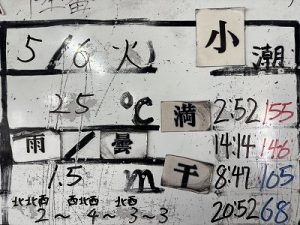 5/6 火 小潮
25 ℃ 満 2:52 155
雨/曇 14:14 146
1.5 m 干 8:47 105
北北西 西北西 北西
2〜4〜3〜3 20:52 68